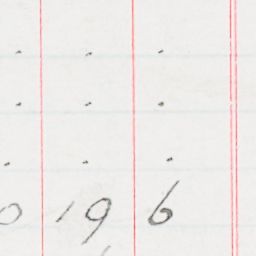 . . .
. . .
. . .
0 19 6